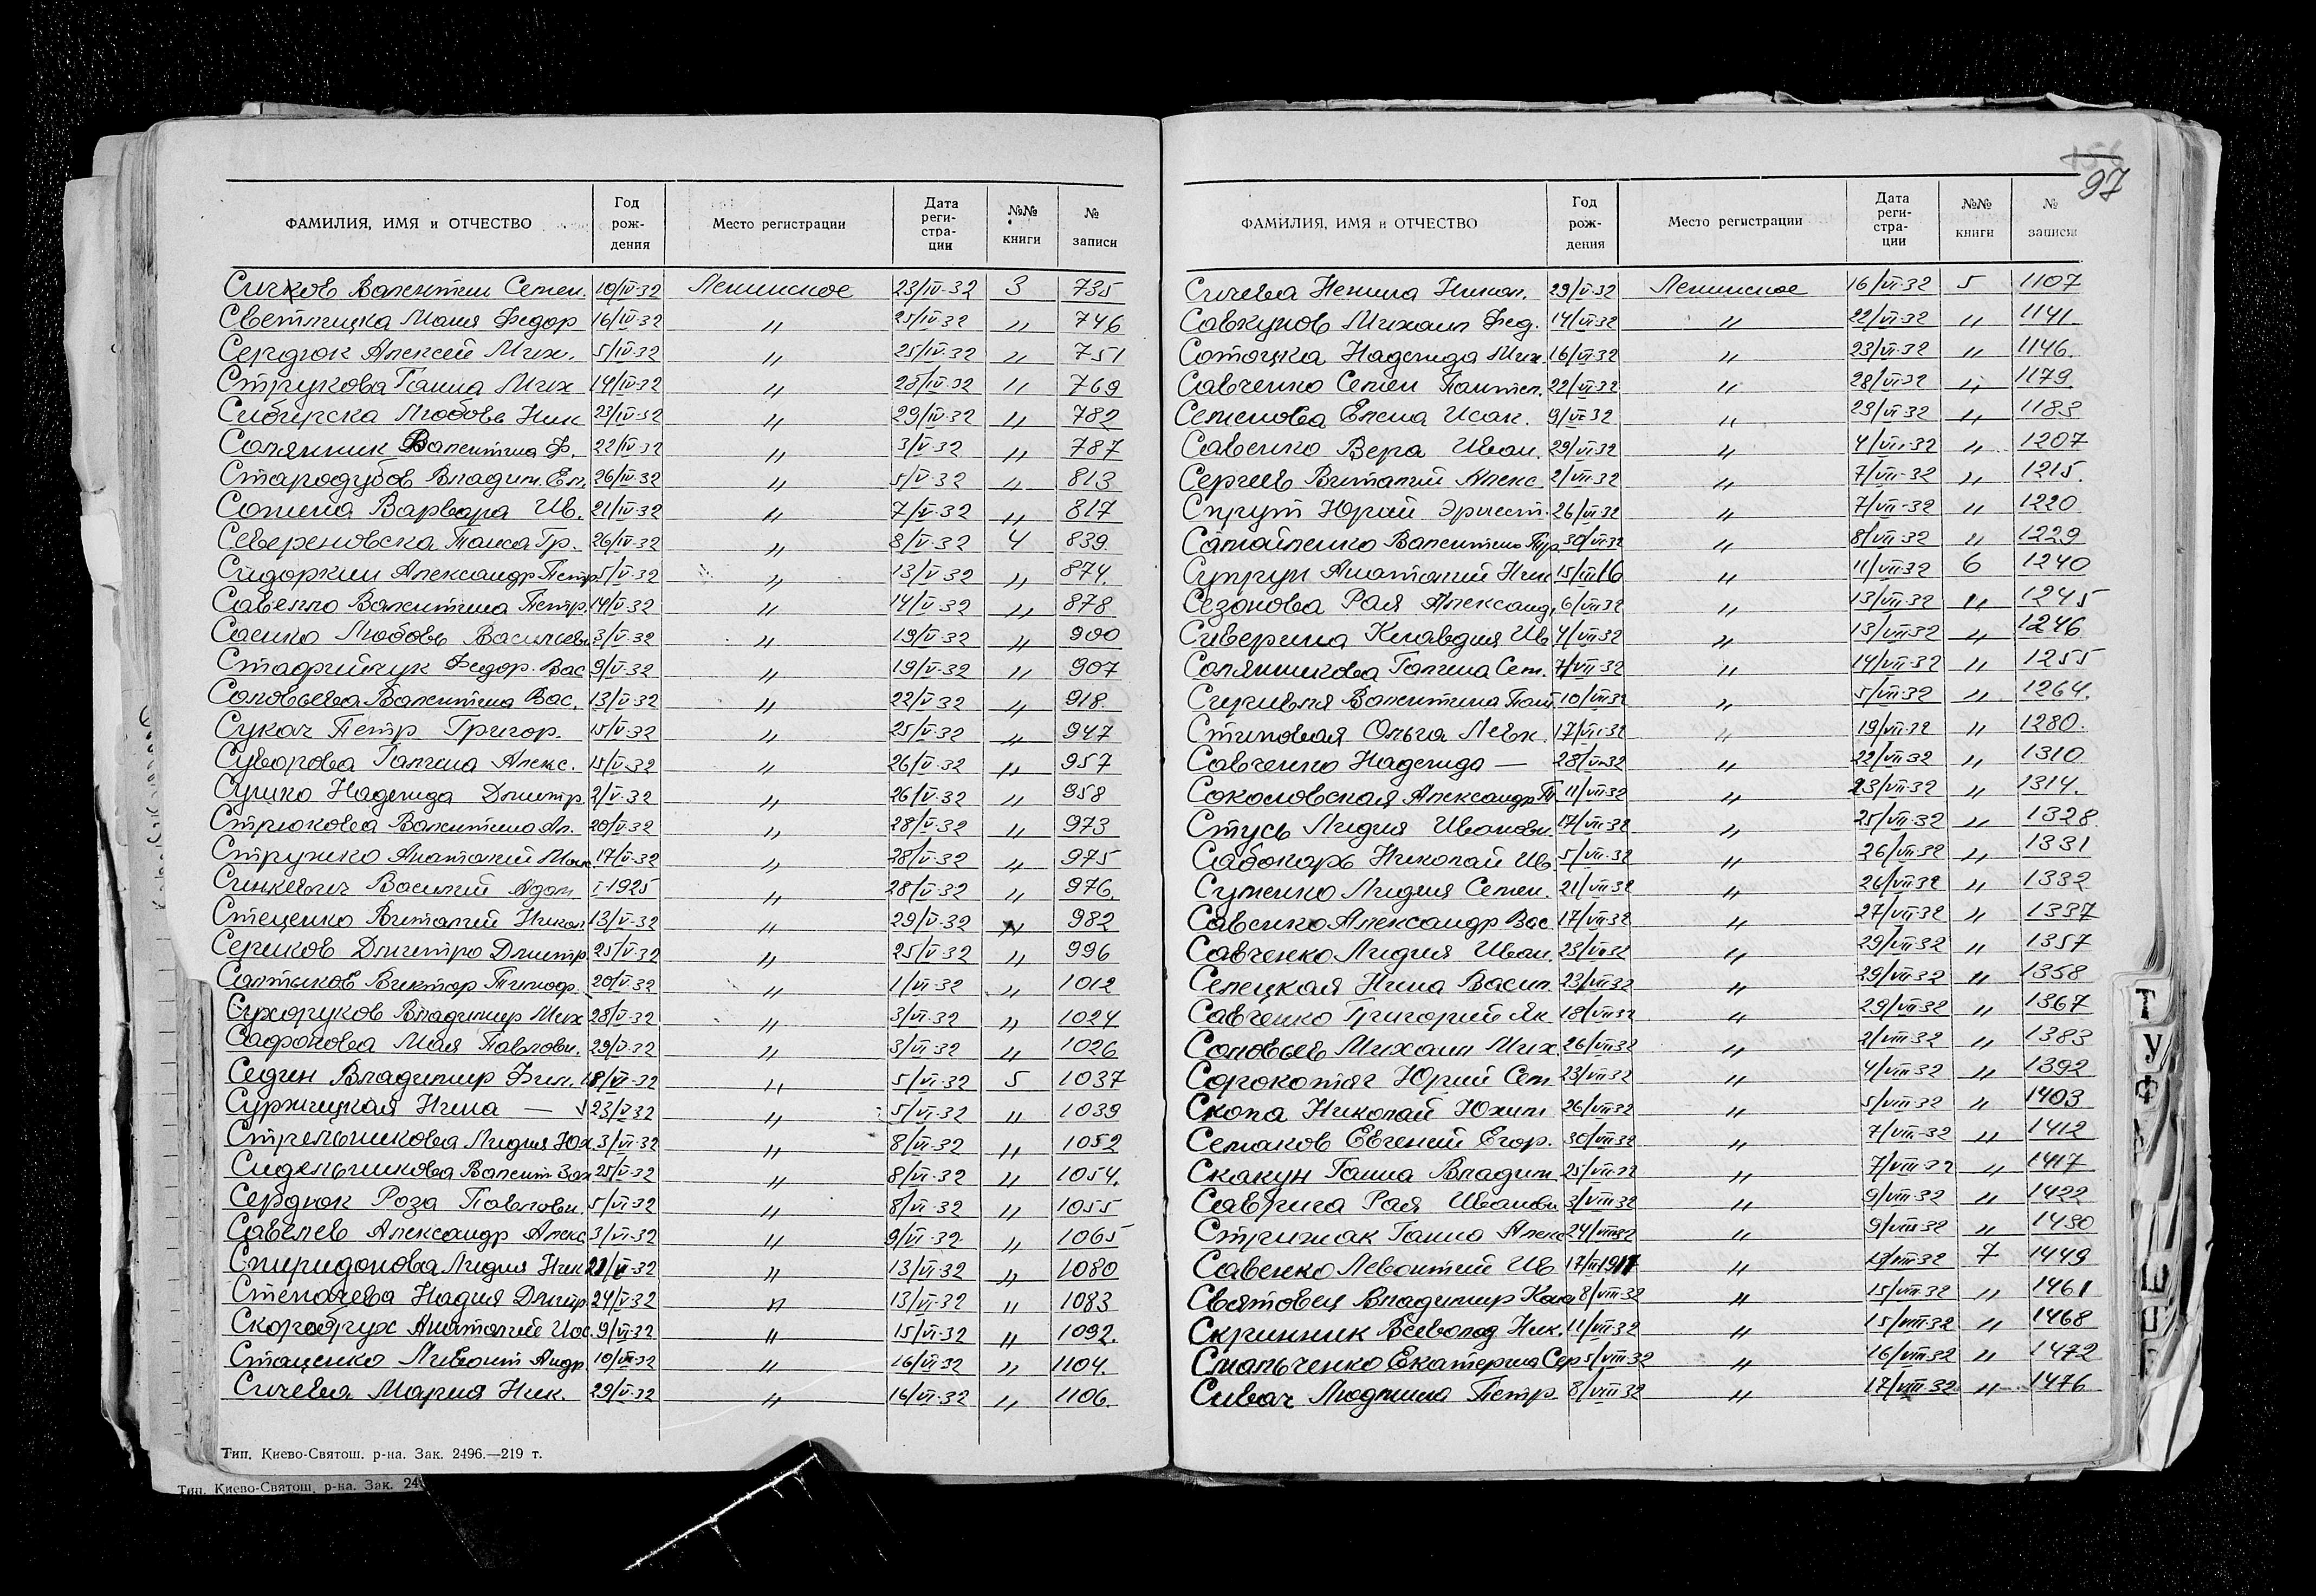 97
ФАМИЛИЯ, ИМЯ и ОТЧЕСТВО Год рож-дения Место регистрации Дата реги-стра-ции №№ книги № записи
Сичков Валентин Семен. 10/IV-32 Ленинское 23/IV-32 3 735
Светлицка Маия Федор 16/IV-32 " 25/IV-32 " 746
Сердюк Алексей Мих. 5/IV-32 " 25/IV-32 " 751
Струкова Ганна Мих 14/IV-32 " 28/IV-32 " 769
Сибирска Любовь Ник 23/IV-32 " 29/IV-32 " 782
Солянник Валентина Ф. 22/IV-32 " 3/V-32 " 787
Стародубов Владим. Ел. 26/IV-32 " 5/V-32 " 813
Сонина Варвара Ив. 21/IV-32 " 7/V-32 " 817
Севереновска Таиса Гр. 26/IV-32 " 8/V-32 4 839
Сидоркин Александр Петр 5/V-32 " 13/V-32 " 874
Савелло Валентина Петр. 14/V-32 " 14/V-32 " 878
Саенко Любовь Васильевн 3/V-32 " 19/V-32 " 900
Стафийчук Федор. Вас 9/V-32 " 19/V-32 " 907
Соловьева Валентина Вас. 13/V-32 " 22/V-32 " 918
Сукач Петр Григор. 15/V-32 " 25/V-32 " 947
Суворова Галина Алекс. 15/V-32 " 26/V-32 " 957
Сушко Надежда Дмитр 2/V-32 " 26/V-32 " 958
Стрюкова Валентина Ал. 20/V-32 " 28/V-32 " 973
Стружко Анатолий Мак 17/V-32 " 28/V-32 " 975
Синкевич Василий Адам I-1925 " 28/V-32 " 976
Стеценко Виталий Никол 13/V-32 " 29/V-32 " 982
Сериков Дмитро Дмитр 25/V-32 " 25/V-32 " 996
Салтыков Виктор Тимоф. 20/V-32 " 1/VI-32 " 1012
Сухоруков Владимир Мих 28/V-32 " 3/VI-32 " 1024
Сафонова Мая Павловн. 29/V-32 " 3/VI-32 " 1026
Седин Владимир Фил. 18/VI-32 " 5/VI-32 5 1037
Суржицкая Нина — √ 23/V-32 " 5/VI-32 " 1039
Стрельникова Лидия Юх. 3/VI-32 " 8/VI-32 " 1052
Сидельникова Валент Зах 25/V-32 " 8/VI-32 " 1054
Сердюк Роза Павловн. 5/VI-32 " 8/VI-32 " 1055
Савелев Александр Алекс 3/VI-32 " 9/VI-32 " 1065
Спиридонова Лидия Ник 21/V-32 " 13/VI-32 " 1080
Степачева Надия Дмитр. 24/V-32 " 13/VI-32 " 1083
Скоробрух Анатолий Иос. 9/VI-32 " 15/VI-32 " 1092
Стаценко Ливонт Андр 10/VI-32 " 16/VI-32 " 1104
Сичева Мария Ник. 29/V-32 " 16/VI-32 " 1106
Тип. Киево-Святош. р-на. Зак. 2496.—219 т.
Тип. Киево-Святош. р-на. Зак. 24
ФАМИЛИЯ, ИМЯ и ОТЧЕСТВО Год рож-дения Место регистрации Дата реги-стра-ции №№ книги № записи
Сичева Ненила Никол. 29/V-32 Ленинское 16/VI-32 5 1107
Савкунов Михаил Фед. 14/VI-32 " 22/VI-32 " 1141
Сотоцка Надежда Мих. 16/VI-32 " 23/VI-32 " 1146
Савченко Семен Пантел. 22/VI-32 " 28/VI-32 " 1179
Семенова Елена Исак. 9/VI-32 " 29/VI-32 " 1183
Савенко Вера Иван. 29/VI-32 " 4/VII-32 " 1207
Сергеев Виталий Алекс. 2/VII-32 " 7/VII-32 " 1215
Спрут Юрий Эрнест. 26/VI-32 " 7/VII-32 " 1220
Самойленко Валентина 30/VI-32 " 8/VII-32 " 1229
Супрун Анатолий Ник 15/III16 " 11/VII-32 6 1240
Сезонова Рая Александ. 6/VII-32 " 13/VII-32 " 1245
Сиверина Клавдия Ив 4/VII-32 " 13/VII-32 " 1246
Солянникова Галина Сем. 7/VII-32 " 14/VII-32 " 1255
Валентина 10/VII-32 " 5/VII-32 " 1264
Становая Ольга Левк. 17/VII-32 " 19/VII-32 " 1280
Савченко Надежда — 28/VI-32 " 22/VII-32 " 1310
Соколовская Александр 11/VII-32 " 23/VII-32 " 1314
Стусь Лидия Ивановн. 17/VII-32 " 25/VII-32 " 1328
Сабокарь Николай Ив. 5/VII-32 " 26/VII-32 " 1331
Суменко Лидия Семен. 21/VII-32 " 26/VII-32 " 1332
Савенко Александр Вас. 17/VII-32 " 27/VII-32 " 1337
Савченко Лидия Иван. 23/VII-32 " 29/VII-32 " 1357
Селецкая Нина Васил. 23/VII-32 " 29/VII-32 " 1358
Савченко Григорий Як. 18/VII-32 " 29/VII-32 " 1367
Соловьев Михаил Мих. 26/VII-32 " 2/VIII-32 " 1383
Сорокотяг Юрий Сем 23/VII-32 " 4/VIII-32 " 1392
Скопа Николай Юхим 26/VII-32 " 5/VIII-32 " 1403
Семаков Евгений Егор. 30/VII-32 " 7/VIII-32 " 1412
Скакун Ганна Владим 25/VII-32 " 7/VIII-32 " 1417
Саврига Рая Ивановн 3/VIII-32 " 9/VIII-32 " 1422
Стрижак Ганна Алекс 24/VII-32 " 9/VIII-32 " 1430
Савенко Левонтий Ив 17/II1917 " 13/VIII-32 7 1449
Святовец Владимир 8/VIII-32 " 15/VIII-32 " 1461
Скринник Всеволод Ник. 11/VIII-32 " 15/VIII-32 " 1468
Смальченко Екатерина Сер 5/VIII-32 " 16/VIII-32 " 1472
Сивач Людмила Петр. 8/VIII-32 " 17/VIII-32 " 1476
Т
У
Ф
Ш